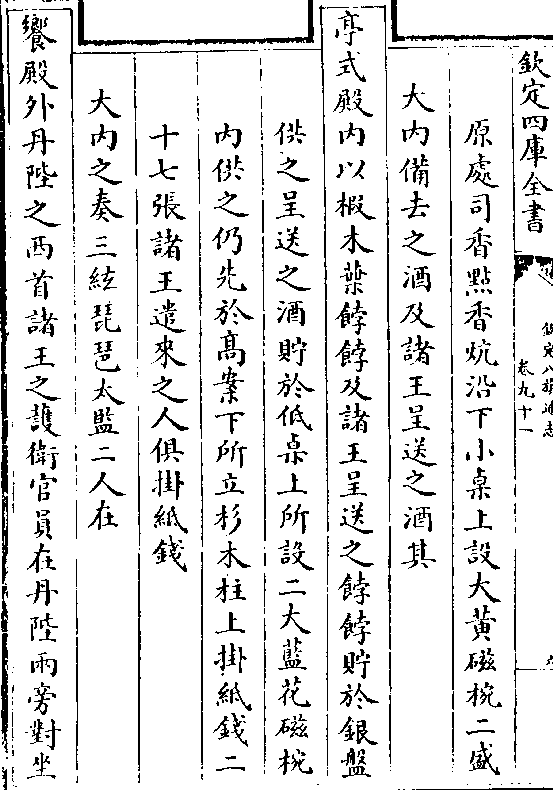 欽定四庫全書
卷九十一
原處司香點香炕沿下小桌上設大黃磁椀二盛
大内備去之酒及諸王呈送之酒其
亭式殿内以椵木葉餑餑及諸王呈送之餑餑貯於銀盤
供之呈送之酒貯於低桌上所設二大藍花磁椀
内供之仍先於高案下所立杉木柱上掛紙錢二
十七張諸王遣來之人俱掛紙錢
大内之奏三絃琵琶太監二人在
饗殿外丹陛之西首諸王之護衛官員在丹陛兩旁對坐